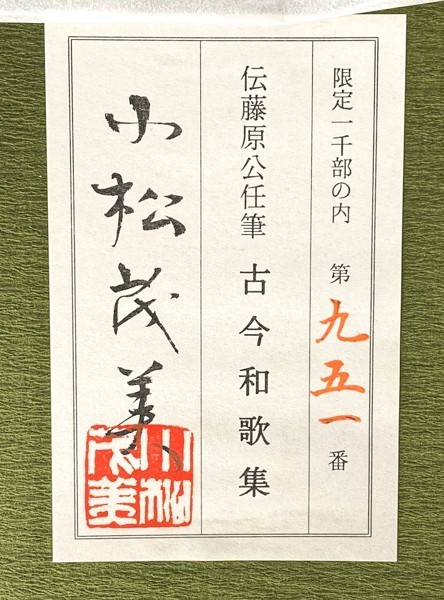 限定一千部の内 第九五一番
伝藤原公任筆 古今和歌集
小松茂美
小松茂美